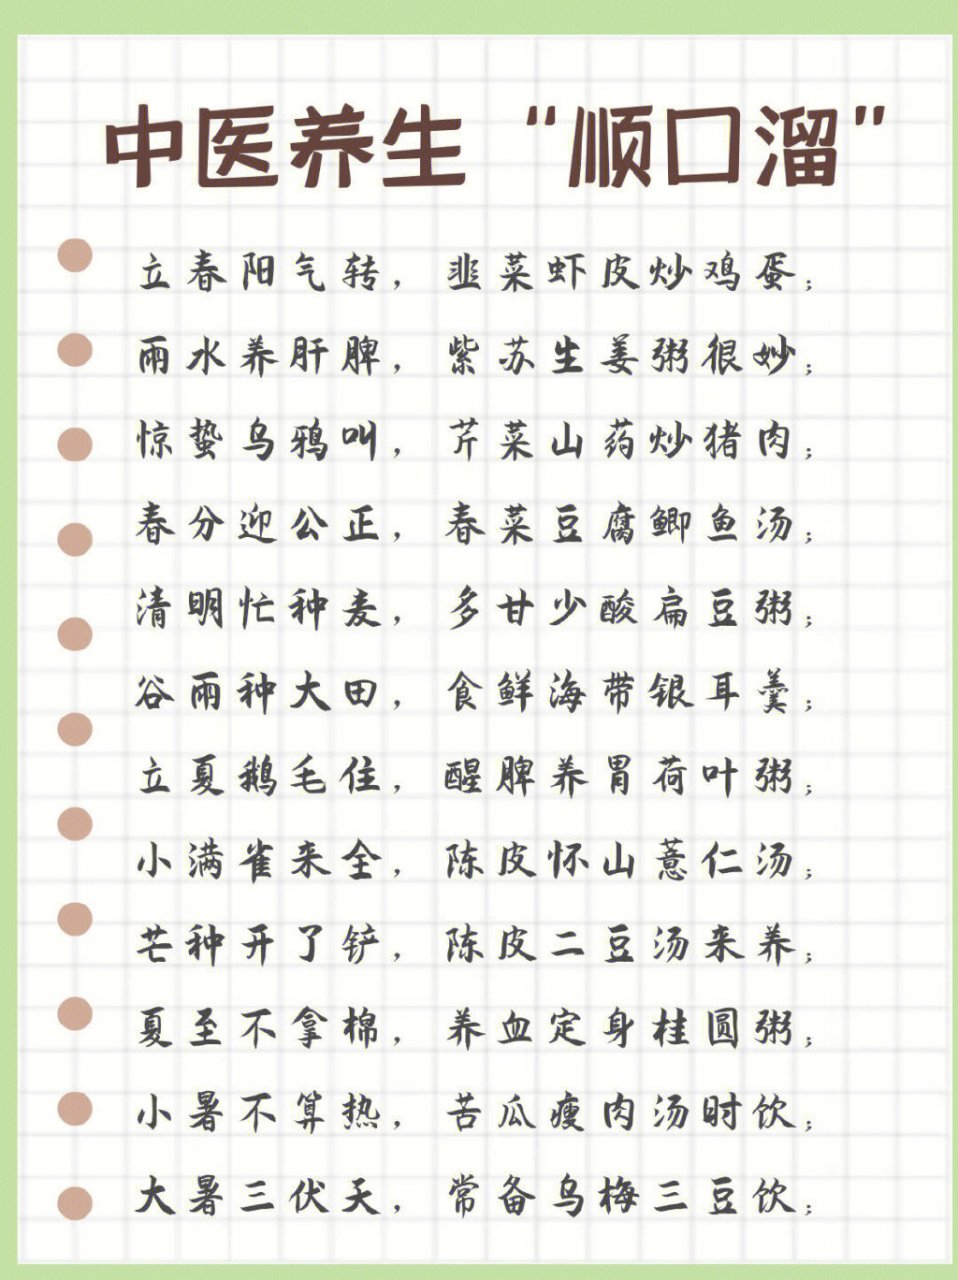 中医养生“顺口溜”
立春阳气转，韭菜虾皮炒鸡蛋；
雨水养肝脾，紫苏生姜粥很妙；
惊蛰乌鸦叫，芹菜山药炒猪肉；
春分迎公正，春菜豆腐鲫鱼汤；
清明忙种麦，多甘少酸扁豆粥；
谷雨种大田，食鲜海带银耳羹；
立夏鹅毛住，醒脾养胃荷叶粥；
小满雀来全，陈皮怀山薏仁汤；
芒种开了铲，陈皮二豆汤来养；
夏至不拿棉，养血定身桂圆粥；
小暑不算热，苦瓜瘦肉汤时饮；
大暑三伏天，常备乌梅三豆饮；